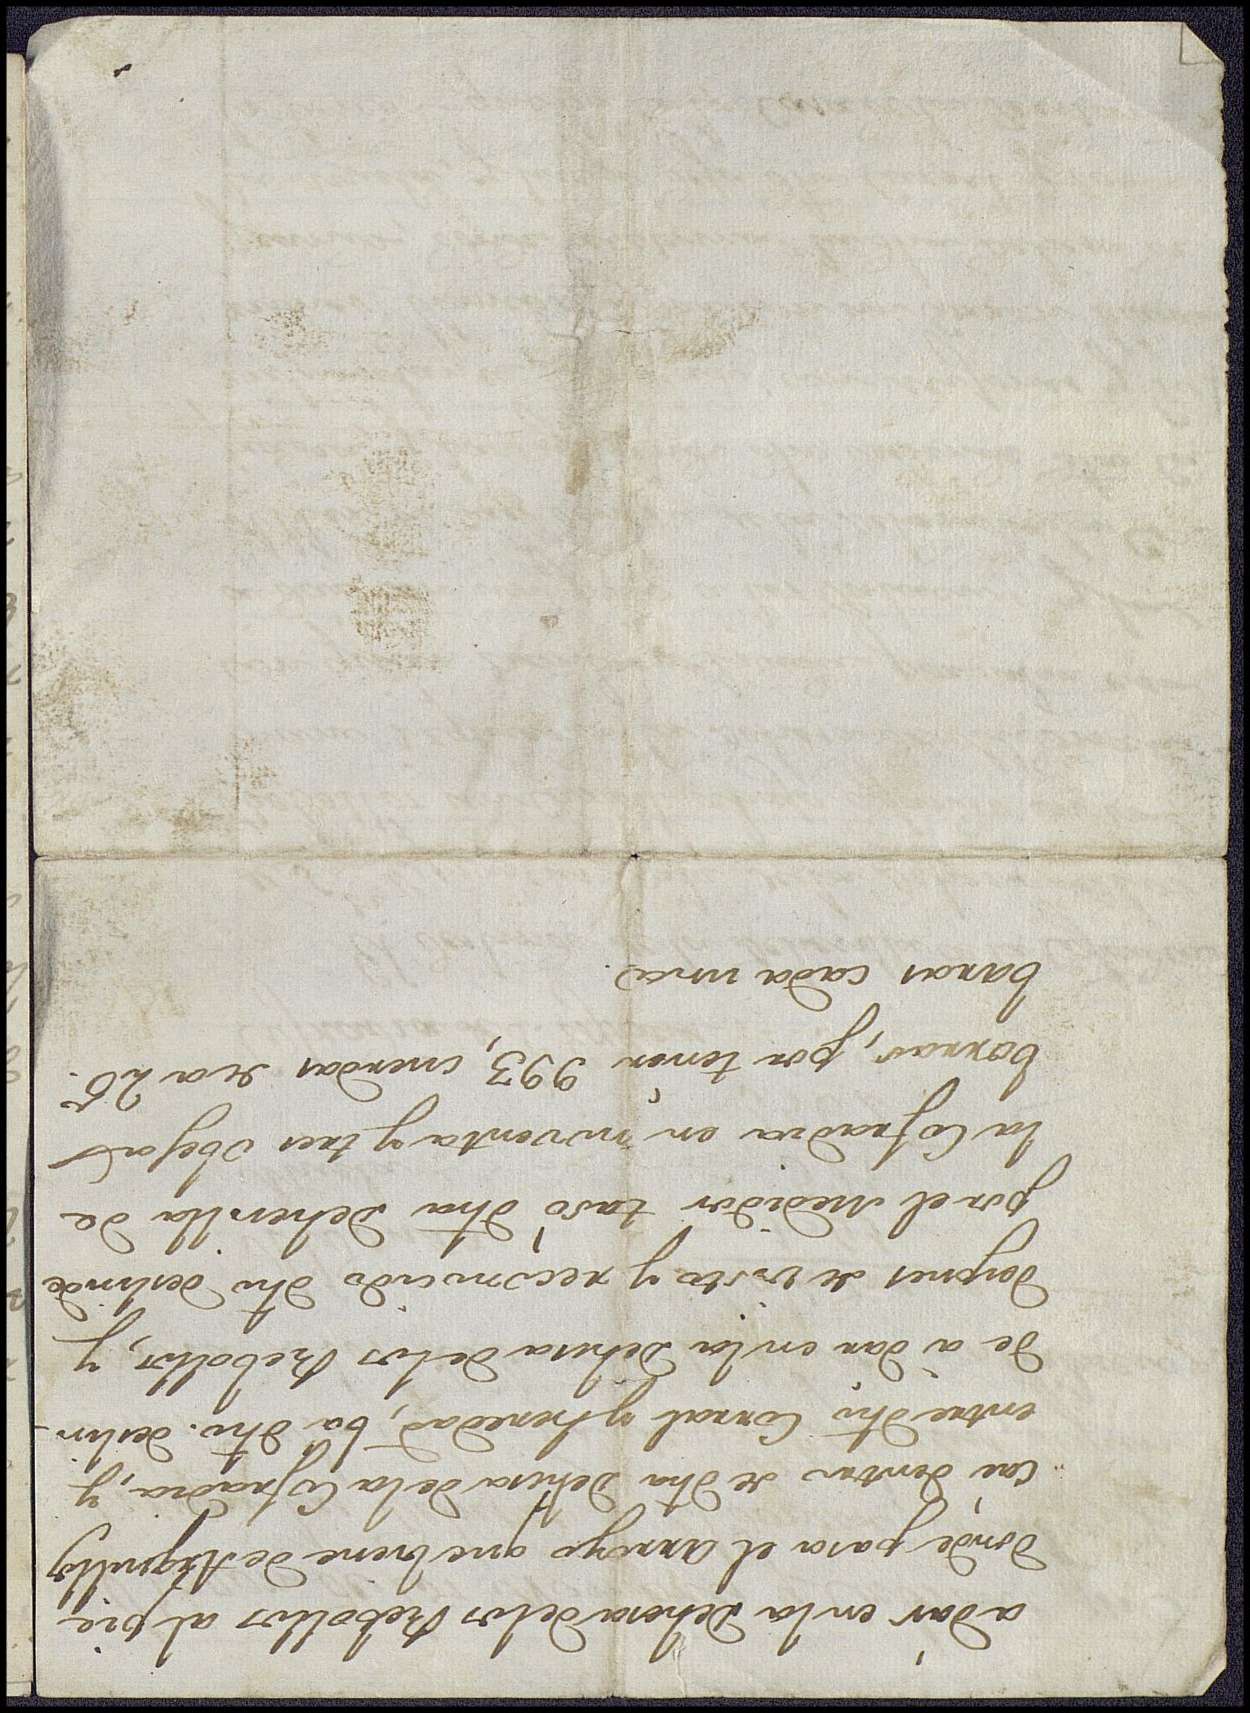 a dar en la Dehesa de los Rebollos al pie
donde pasa el arroyo que biene de Arguillos
cae dentro de dha Dehesa de la Cofradia, y
entre dho Corral y heredad, ba dho. deslin-
de a dar en la Dehesa de los Rebollos, y
despues de visto y reconocido dho deslinde
por el Medidor tasó dha Dehesilla de
la Cofradia en nobenta y tres obejas
borras, por tener 993, cuerdas de a 25.
baras cada una.